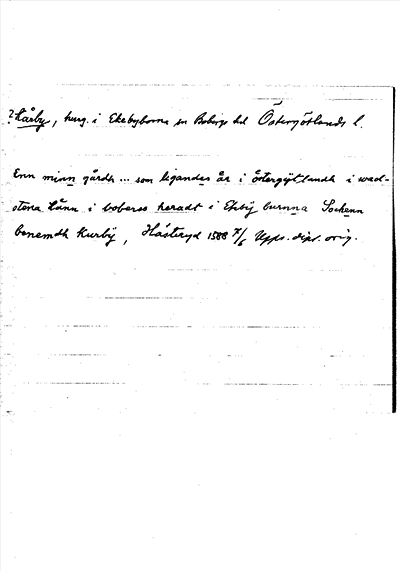 ? Kårby, herg. i Ekebyborna sn Bobergs hd Östergötlands l.
Enn minn gårdh ... som ligandes är i östergiötlandh i wad-
stena Länn i bobergs heradt i Ekbÿ burnna Sockenn
benemdh Kurbÿ, Hästeryd 1588 7/6 Upps. dipl. orig.